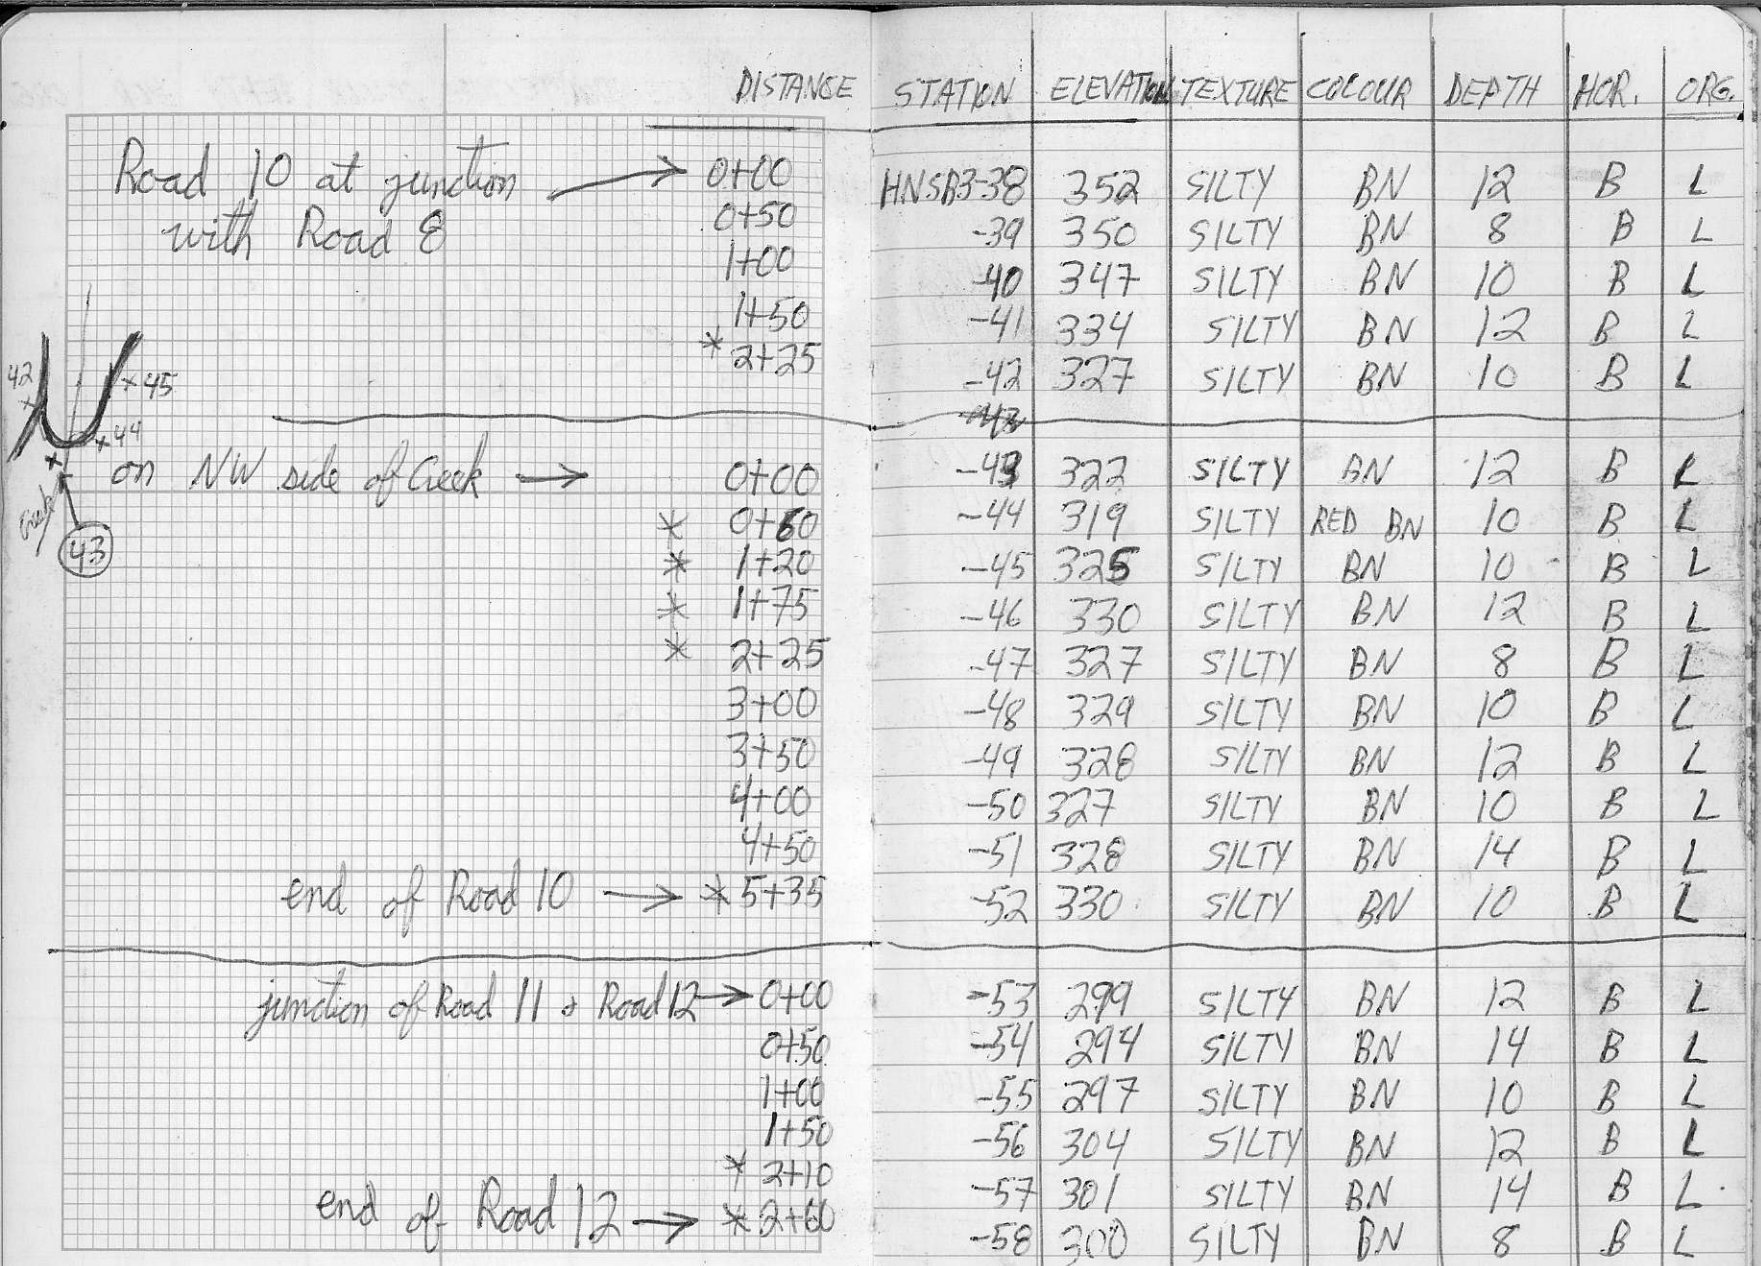 DISTANCE STATION ELEVATION TEXTURE COLOUR DEPTH HOR. ORG.
Road 10 at junction → 0+00 HNSB3-38 352 SILTY BN 12 B L
with Road 8 0+50 -39 350 SILTY BN 8 B L
1+00 -40 347 SILTY BN 10 B L
1+50 -41 334 SILTY BN 12 B L
* 2+25 -42 327 SILTY BN 10 B L
42 45
44
on NW side of Creek → 0+00 -43 322 SILTY BN 12 B L
* 0+60 -44 319 SILTY RED BN 10 B L
Creek
43
* 1+20 -45 325 SILTY BN 10 B L
* 1+75 -46 330 SILTY BN 12 B L
* 2+25 -47 327 SILTY BN 8 B L
3+00 -48 329 SILTY BN 10 B L
3+50 -49 328 SILTY BN 12 B L
4+00 -50 327 SILTY BN 10 B L
4+50 -51 328 SILTY BN 14 B L
end of Road 10 → * 5+35 -52 330 SILTY BN 10 B L
junction of Road 11 & Road 12 → 0+00 -53 299 SILTY BN 12 B L
0+50 -54 294 SILTY BN 14 B L
1+00 -55 297 SILTY BN 10 B L
1+50 -56 304 SILTY BN 12 B L
* 2+10 -57 301 SILTY BN 14 B L
end of Road 12 → * 2+60 -58 300 SILTY BN 8 B L